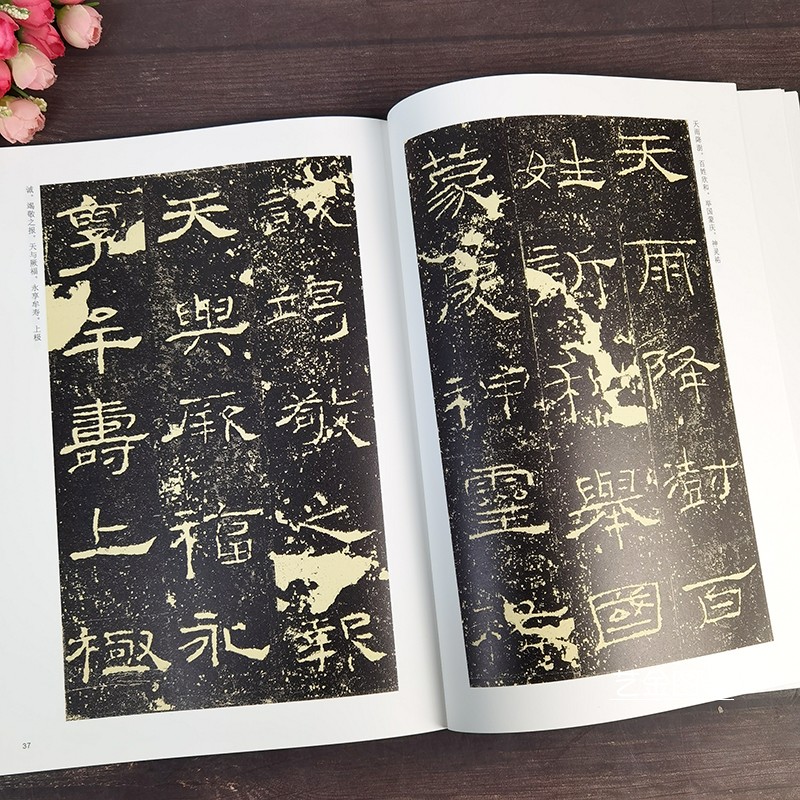 天雨降澍，百姓欣和，举国蒙庆。神灵祐
天雨降澍百
姓訢和舉國
蒙慶神靈祐
誠竭敬之報
天與厥福永
享牟壽上極
诚，竭敬之报，天与厥福，永享牟寿，上极
37